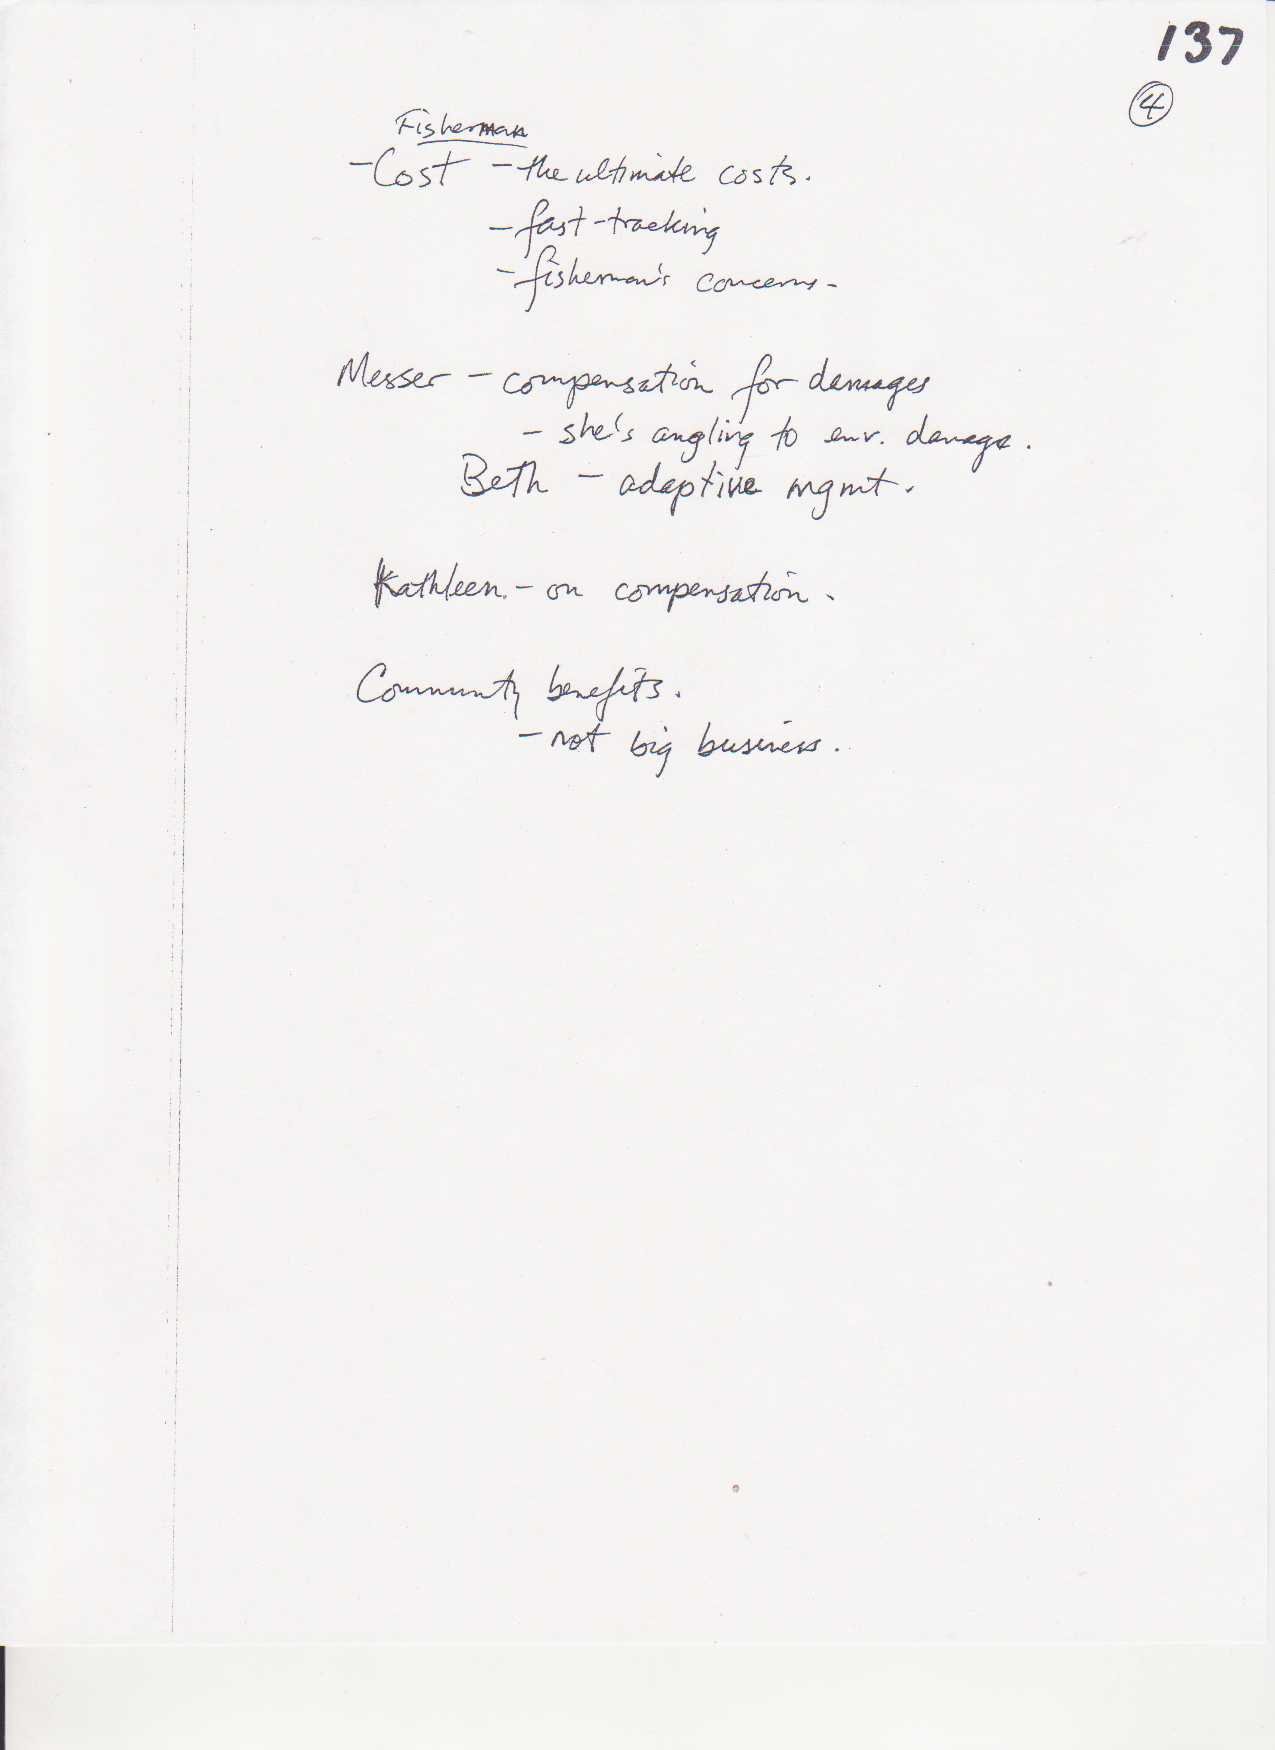 137
4
Fisherman
- Cost - the ultimate costs.
- fast-tracking
- fisherman's concerns -
Messer - compensation for damages
- she's angling to env. damage.
Beth - adaptive mgmt.
Kathleen. - on compensation.
Community benefits.
- not big business.